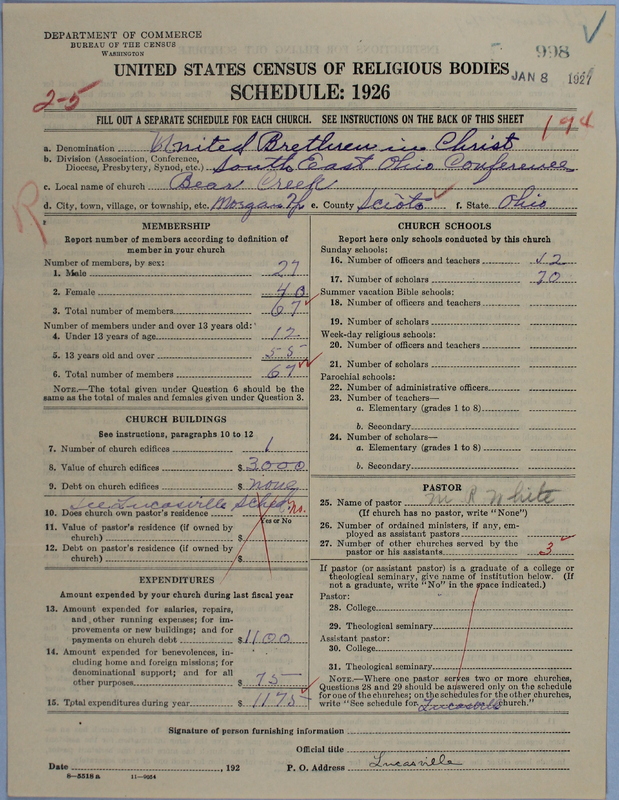 DEPARTMENT OF COMMERCE
BUREAU OF THE CENSUS
WASHINGTON
998
UNITED STATES CENSUS OF RELIGIOUS BODIES
JAN 8 1927
SCHEDULE: 1926
2-5
FILL OUT A SEPARATE SCHEDULE FOR EACH CHURCH. SEE INSTRUCTIONS ON THE BACK OF THIS SHEET
194
a. Denomination United Brethren in Christ
b. Division (Association, Conference, Diocese, Presbytery, Synod, etc.) South East Ohio Conference
c. Local name of church Bear Creek
d. City, town, village, or township, etc. Morgan Tp e. County Scioto f. State Ohio
R
MEMBERSHIP
Report number of members according to definition of
member in your church
Number of members, by sex:
1. Male 27
2. Female 40
3. Total number of members 67
Number of members under and over 13 years old:
4. Under 13 years of age 12
5. 13 years old and over 55
6. Total number of members 67
NOTE.—The total given under Question 6 should be
same as the total of males and females given under Question 3.
CHURCH BUILDINGS
See instructions, paragraphs 10 to 12
7. Number of church edifices 1
8. Value of church edifices $ 3000
9. Debt on church edifices $ none
Lucasville Sched
10. Does church own pastor's residence No.
Yes or No
11. Value of pastor's residence (if owned by
church) $
12. Debt on pastor's residence (if owned by
church) $
EXPENDITURES
Amount expended by your church during last fiscal year
13. Amount expended for salaries, repairs,
and other running expenses; for im-
provements or new buildings; and for
payments on church debt $ 1100
14. Amount expended for benevolences, in-
cluding home and foreign missions; for
denominational support; and for all
other purposes $ 75
15. Total expenditures during year $ 1175
CHURCH SCHOOLS
Report here only schools conducted by this church
Sunday schools:
16. Number of officers and teachers 12
17. Number of scholars 70
Summer vacation Bible schools:
18. Number of officers and teachers
19. Number of scholars
Week-day religious schools:
20. Number of officers and teachers
21. Number of scholars
Parochial schools:
22. Number of administrative officers
23. Number of teachers—
a. Elementary (grades 1 to 8)
b. Secondary
24. Number of scholars—
a. Elementary (grades 1 to 8)
b. Secondary
PASTOR
25. Name of pastor M R White
(If church has no pastor, write "None")
26. Number of ordained ministers, if any, em-
ployed as assistant pastors
27. Number of other churches served by the
pastor or his assistants 3
If pastor (or assistant pastor) is a graduate of a college or
theological seminary, give name of institution below. (If
not a graduate, write "No" in the space indicated.)
Pastor:
28. College
29. Theological seminary
Assistant pastor:
30. College
31. Theological seminary
NOTE.—Where one pastor serves two or more churches,
Questions 28 and 29 should be answered only on the schedule
for one of the churches; on the schedules for the other churches,
write "See schedule for Lucasville church."
Signature of person furnishing information
Official title
Date , 192 P. O. Address Lucasville
8—5518a 11—9654